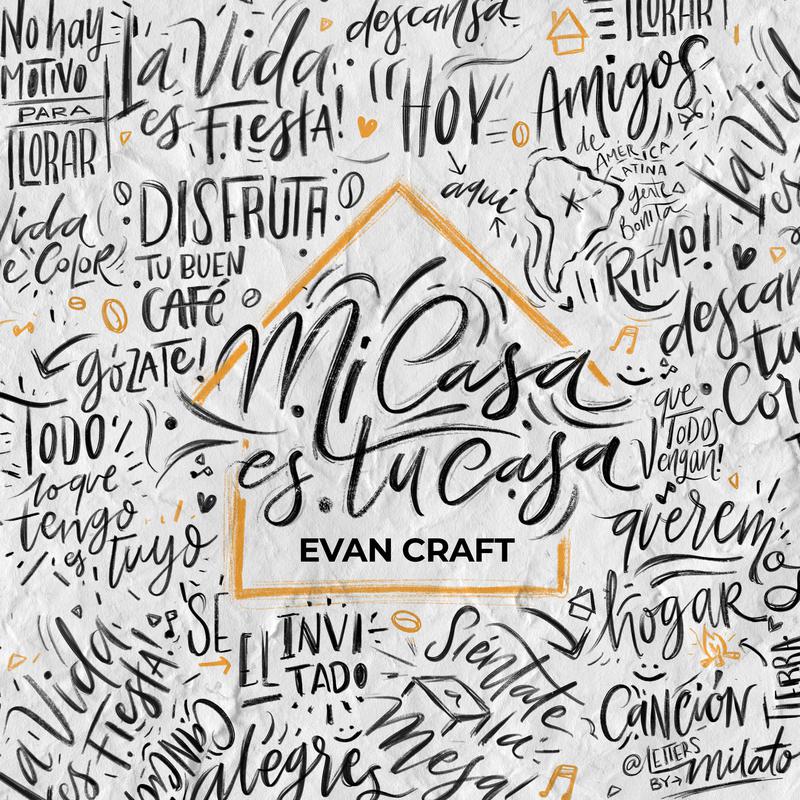 No hay
MOTIVO
PARA
LLORAR
La Vida
es Fiesta!
descansa
"HOY"
aquí
LLORAR
Amigos
de
AMÉRICA
LATINA
gente
Bonita
La Vid
es
Vida
e Color
DISFRUTA
TU BUEN
CAFÉ
GÓZATE!
RITMO!!
descan
tu
Cor
Mi Casa
es tu casa
EVAN CRAFT
TODO
lo que
tengo
es tuyo
que
TODOS
Vengan!
querem
hogar
SÉ
EL INVI
TADO
Siéntate
a la
Mesa
La Vida
es Fiesta!
CANCIÓ
alegres
TIERRA
CANCIÓN
@LETTERS
BY→milato